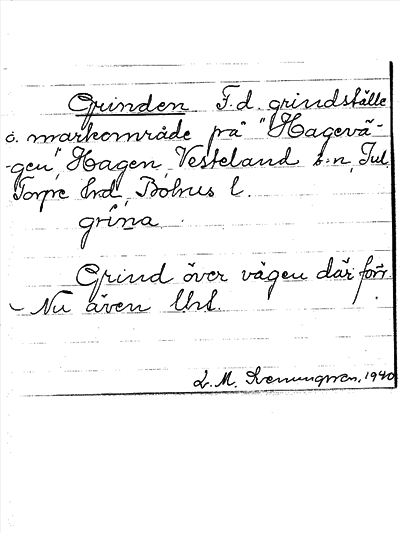 Grinden F.d. grindställe
o. markområde på "Hagevä-
-gen", Hagen, Vesteland s:n, Tul
Torpe hrd, Bohus l.
grina
Grind över vägen där förr.
– Nu även
L. M. 1940